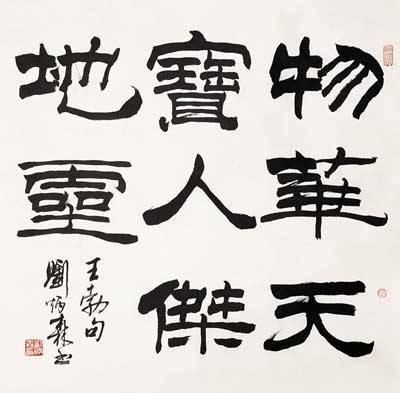 物華天
寶人傑
地靈
王勃句
劉炳森書